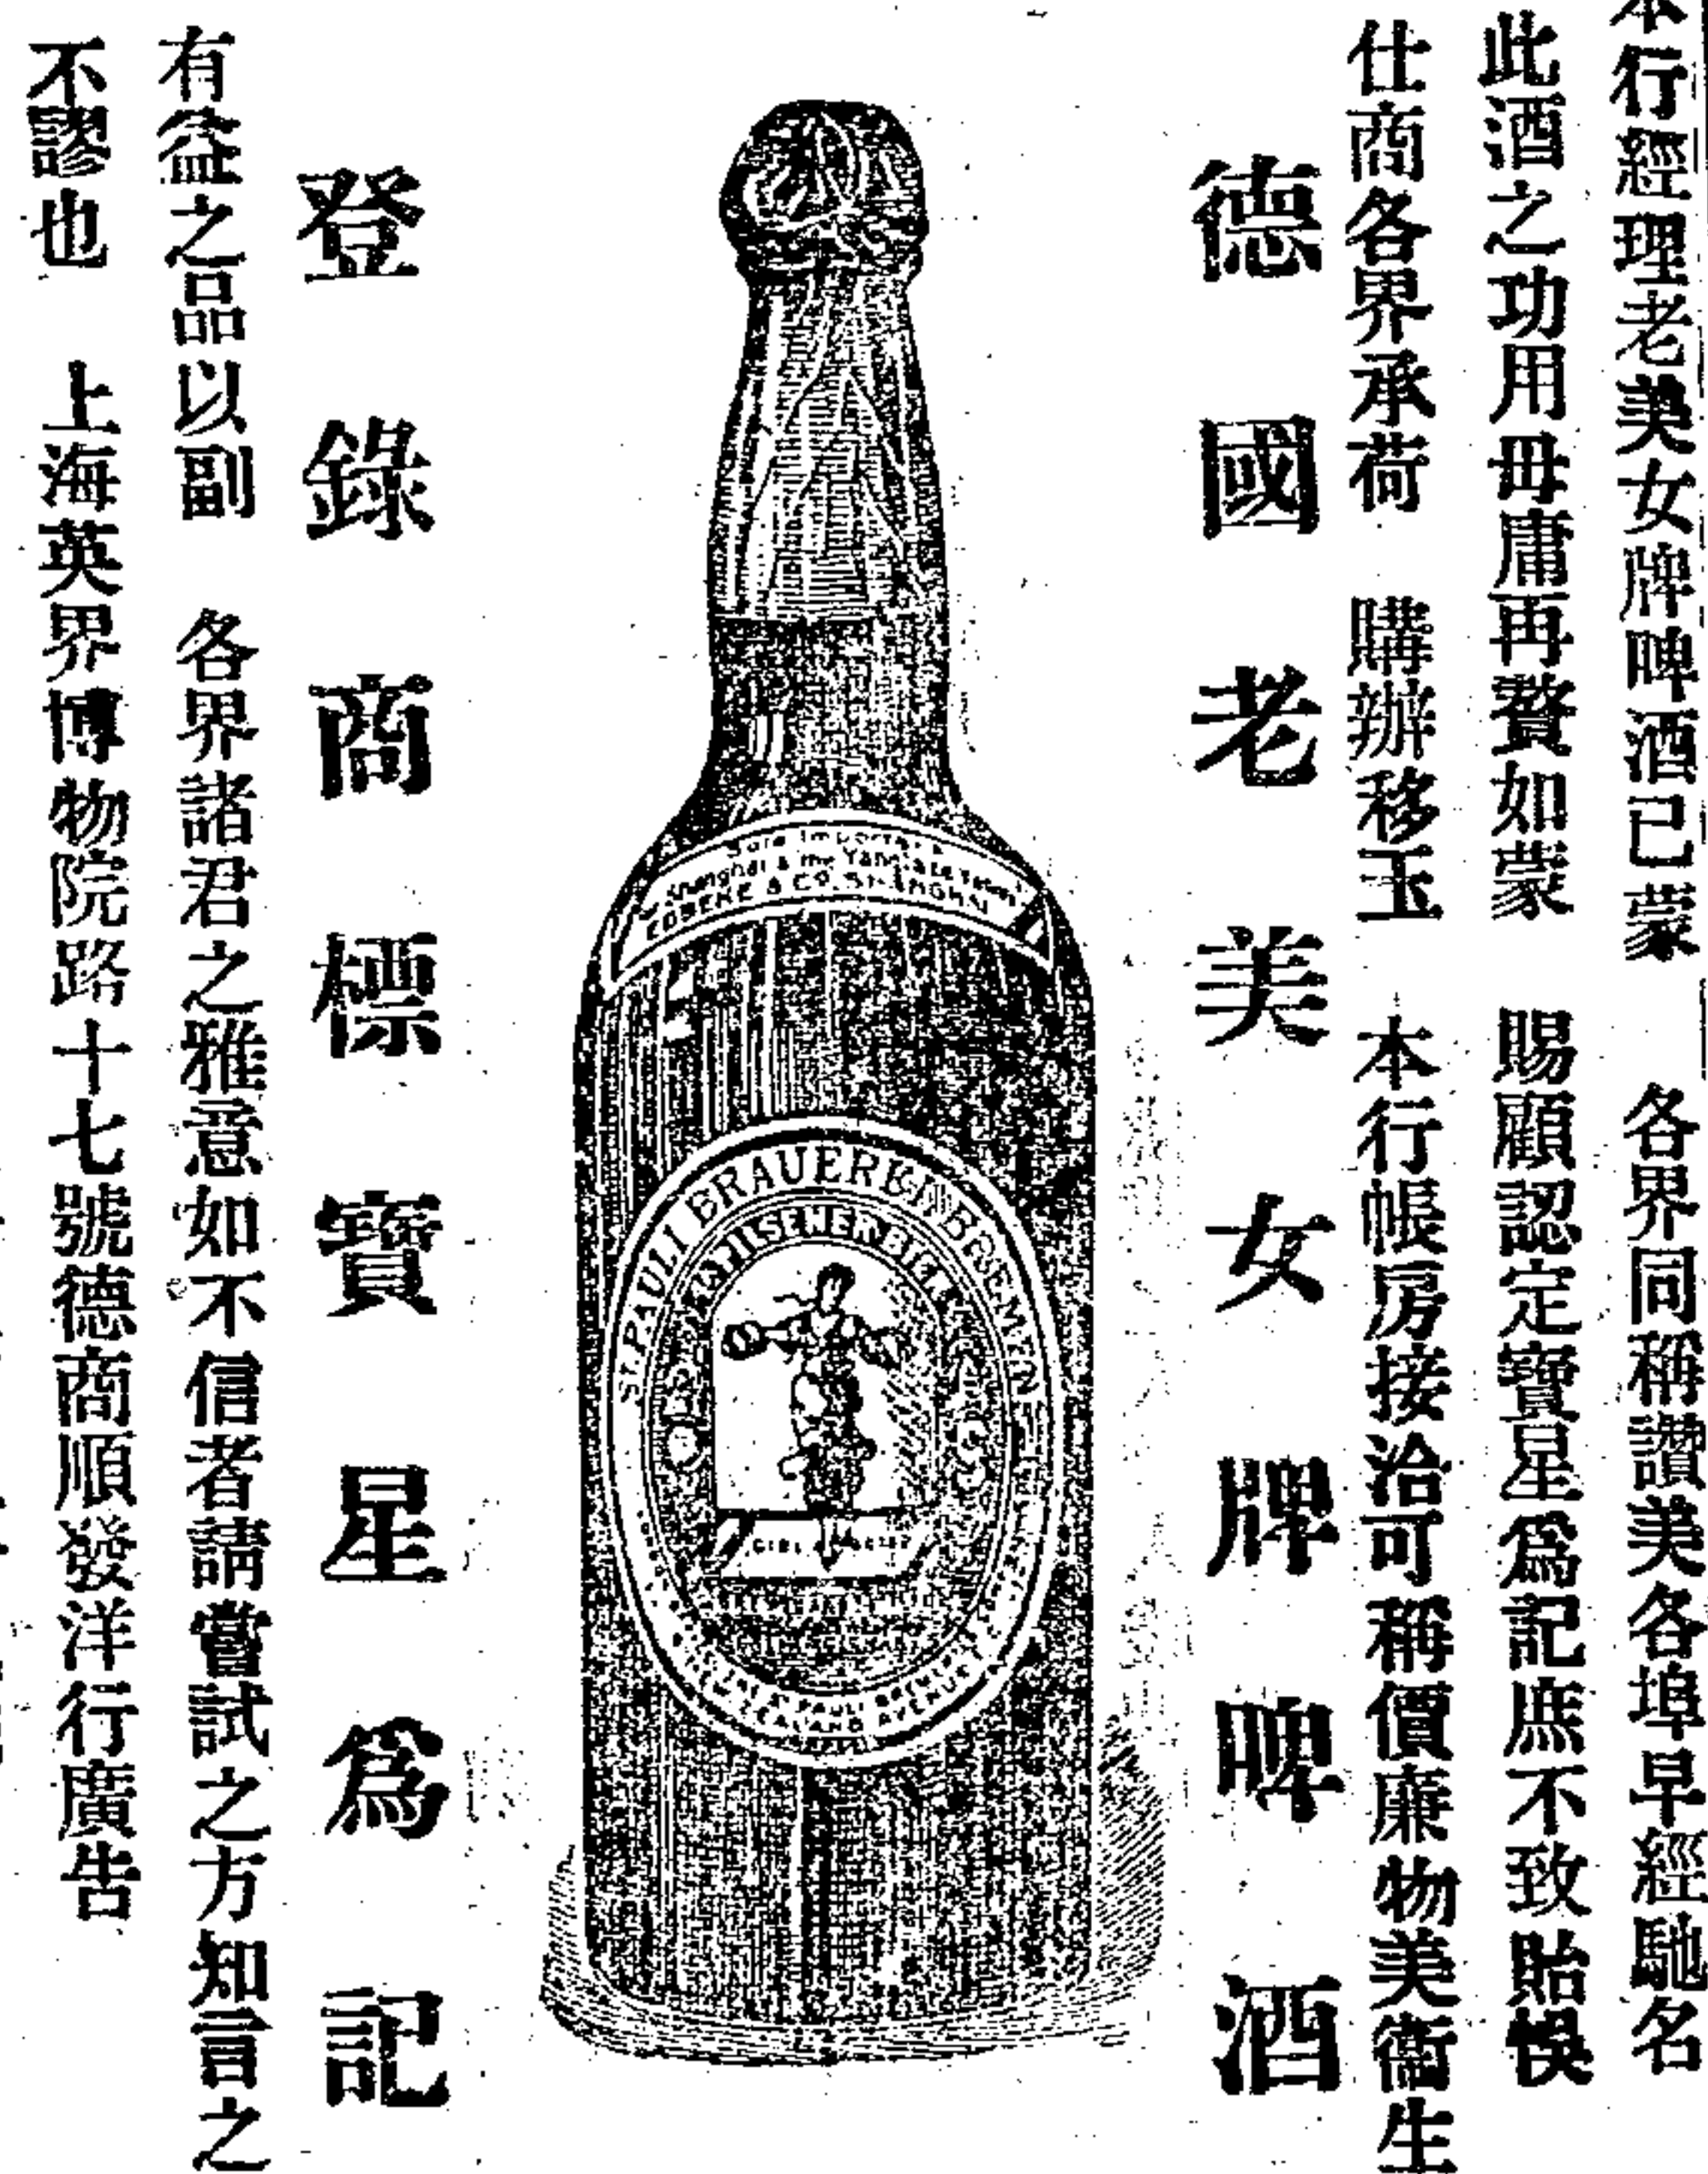 本行經理老美女牌啤酒已蒙　各界同稱讚美各埠早經馳名
此酒之功用毋庸再贅如蒙　賜顧認定寶星爲記庶不致貽悞
仕商各界承荷　購辦移玉　本行帳房接洽可稱價廉物美衞生
德國老美女牌啤酒
Sole Importers
Shanghai & the Yangtsze Valley
& CO. SHANGHAI
ST. PAULI BRAUEREI BREMEN
ST PAULI BREWERY
AVENUE
登錄商標寶星爲記
有益之品以副　各界諸君之雅意如不信者請嘗試之方知言之
不謬也　上海英界博物院路十七號德商順發洋行廣告